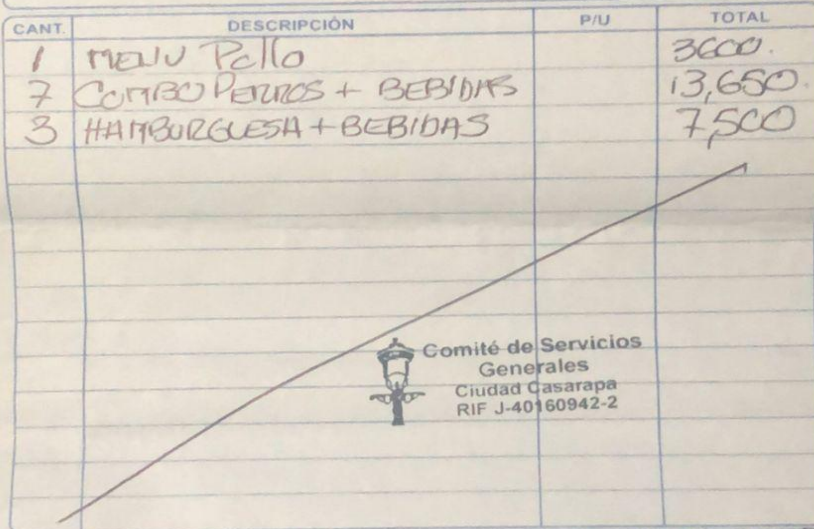 CANT. DESCRIPCIÓN P/U TOTAL
1 MENU Pollo 3600.
7 COMBO PERROS + BEBIDAS 13,650.
3 HAMBURGUESA + BEBIDAS 7,500
Comité de Servicios
Generales
Ciudad Casarapa
RIF J-40160942-2